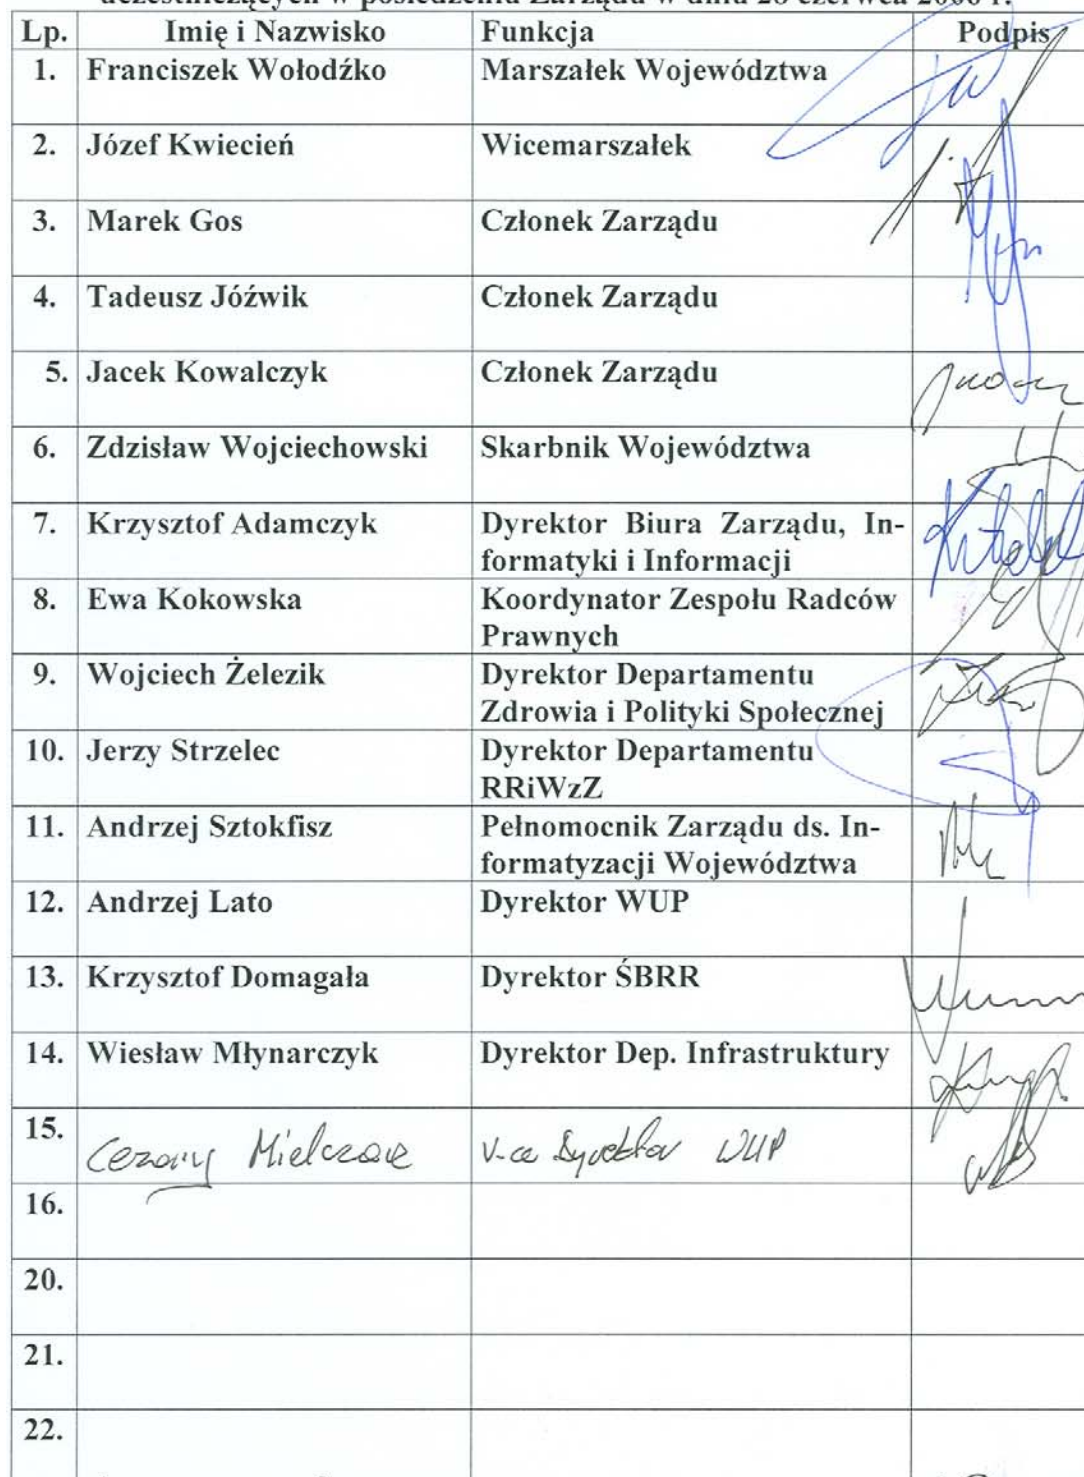 uczestniczących w posiedzeniu Zarządu w dniu 28 czerwca 2006 r.
Lp. Imię i Nazwisko Funkcja Podpis
1. Franciszek Wołodźko Marszałek Województwa
2. Józef Kwiecień Wicemarszałek
3. Marek Gos Członek Zarządu
4. Tadeusz Jóźwik Członek Zarządu
5. Jacek Kowalczyk Członek Zarządu
6. Zdzisław Wojciechowski Skarbnik Województwa
7. Krzysztof Adamczyk Dyrektor Biura Zarządu, In-
formatyki i Informacji
8. Ewa Kokowska Koordynator Zespołu Radców
Prawnych
9. Wojciech Żelezik Dyrektor Departamentu
Zdrowia i Polityki Społecznej
10. Jerzy Strzelec Dyrektor Departamentu
RRiWzZ
11. Andrzej Sztokfisz Pełnomocnik Zarządu ds. In-
formatyzacji Województwa
12. Andrzej Lato Dyrektor WUP
13. Krzysztof Domagała Dyrektor ŚBRR
14. Wiesław Młynarczyk Dyrektor Dep. Infrastruktury
15. Cezary Mielczarek V-ce Dyrektor WUP
16.
20.
21.
22.